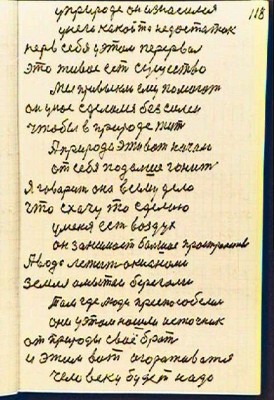 118
у природе он износился
у него какой то недостаток
нерв себя у этом перервал
это живое ест сущиство
Мы привыкли ему помогат
он уное сделался без силен
чтобы в природе жит
А природа эта вот начала
от себя подальше гонит
Я говорит она всему дело
что схачу то сделаю
уменя ест воздух
он занимаит большое пространство
А вода лежит окианами
земля омытая берегами
Там где люди приспособели
они у этом нашли источник
от природы своё брат
и этим вот огораживатся
человеку будет надо